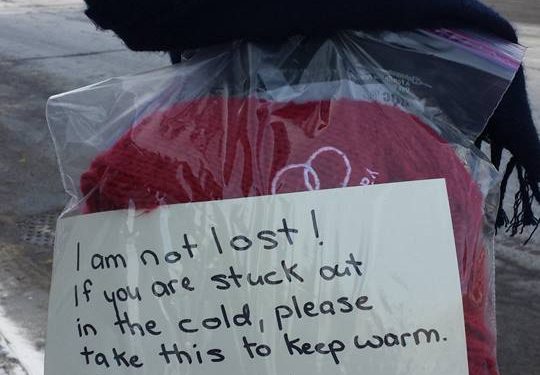 I am not lost!
If you are stuck out
in the cold, please
take this to keep warm.